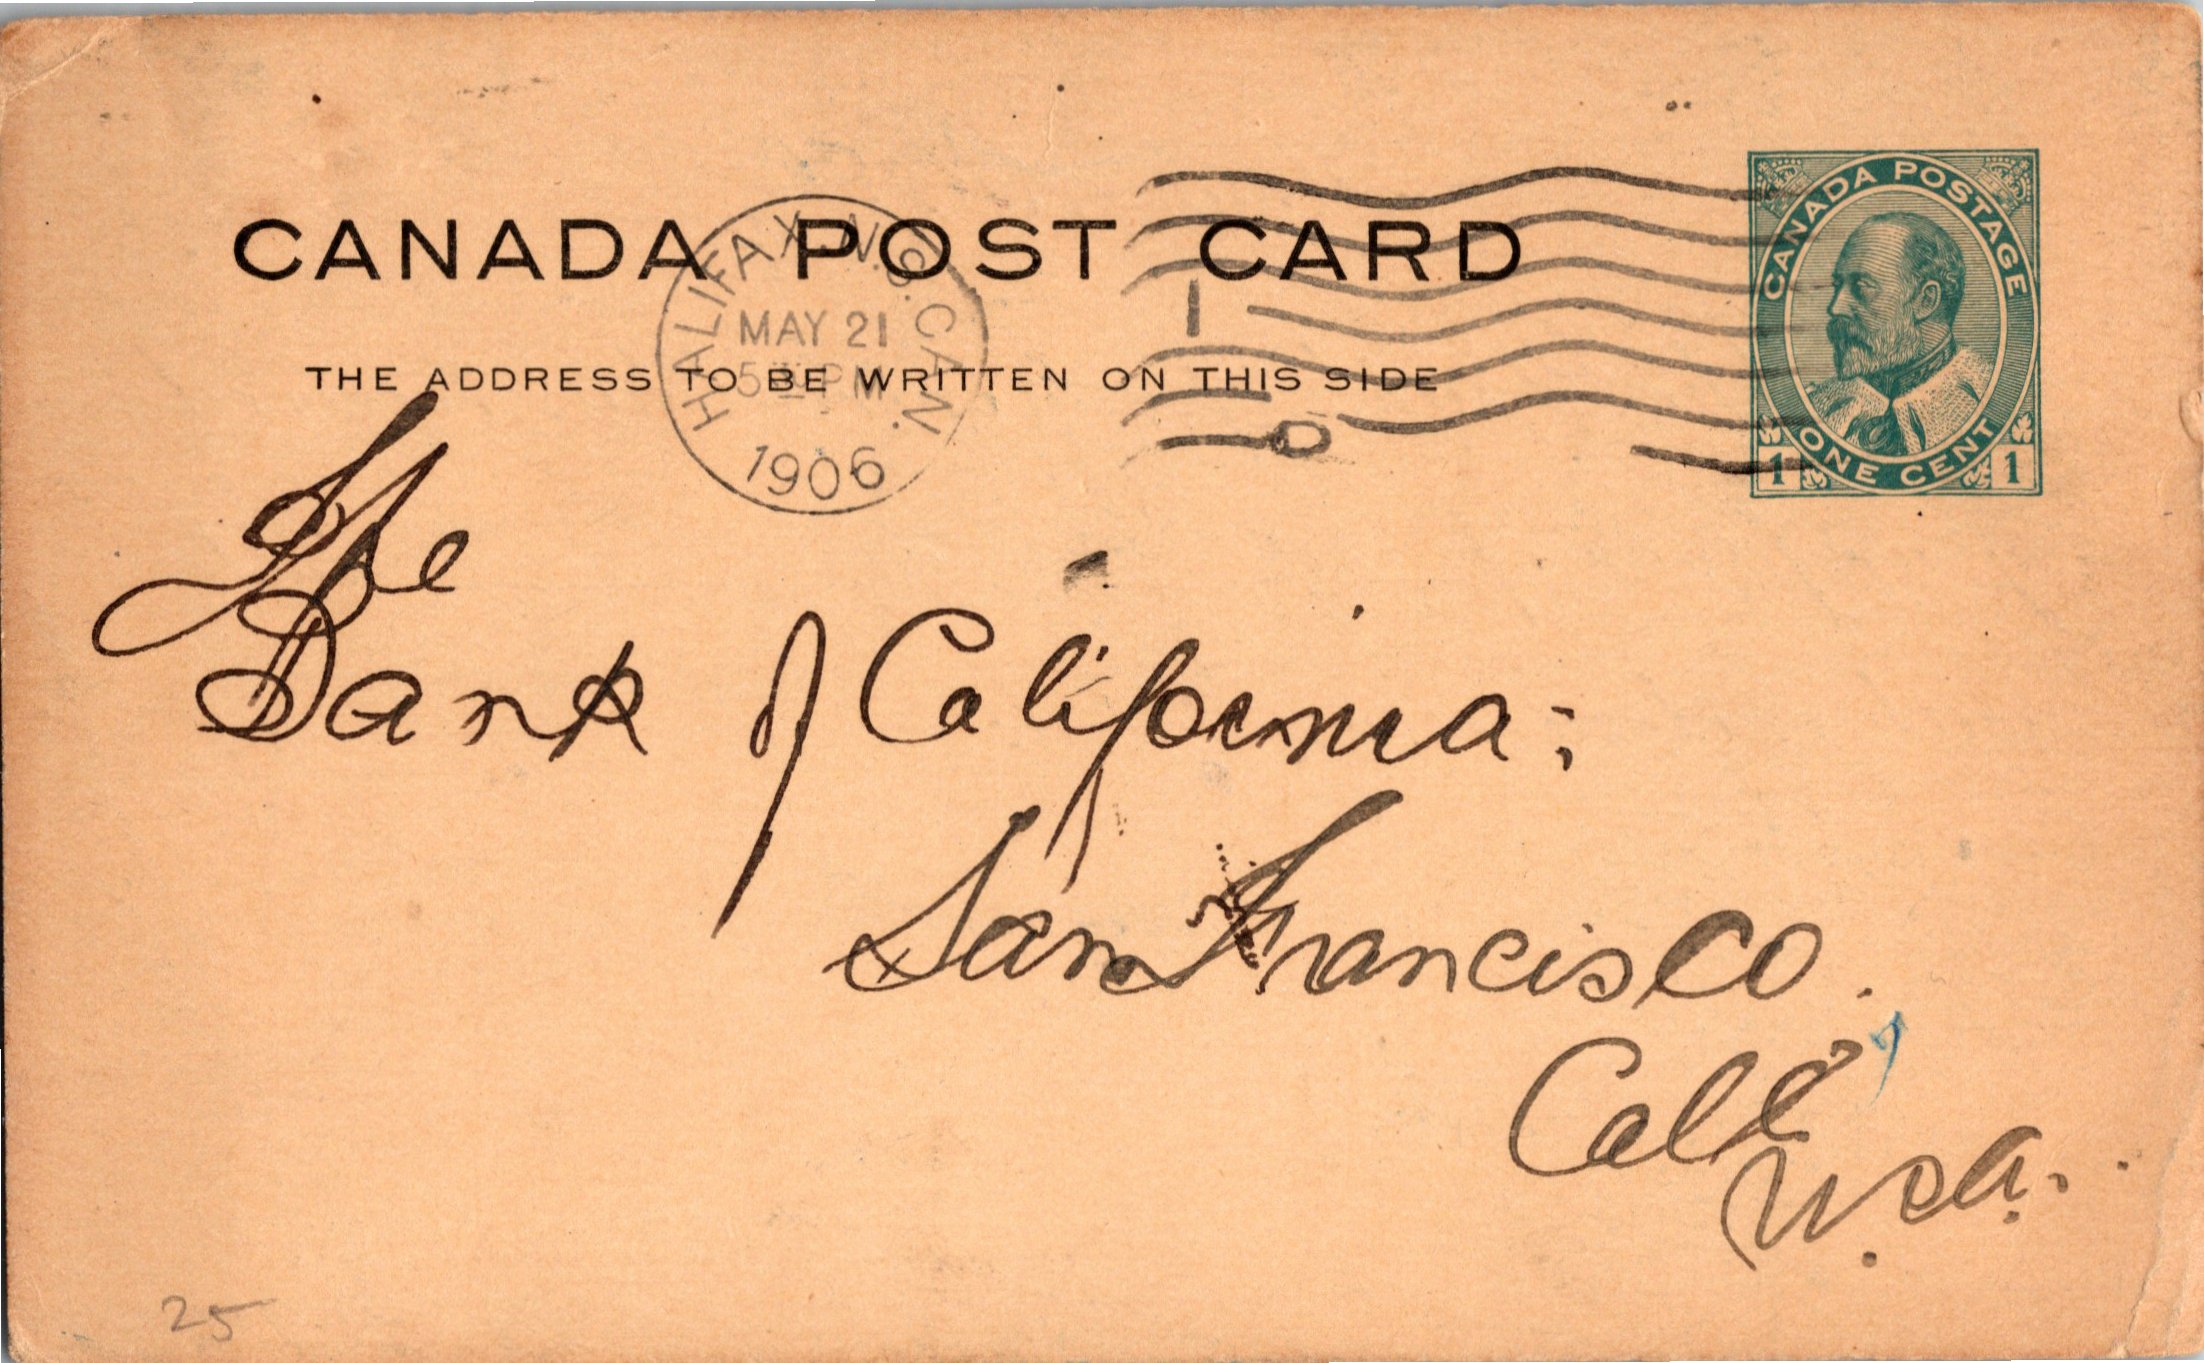 CANADA POST CARD
HALIFAX, N.S. CAN.
MAY 21
5 PM
1906
CANADA POSTAGE
ONE CENT
1 1
THE ADDRESS TO BE WRITTEN ON THIS SIDE
The
Bank of California;
San Francisco.
Cal
U.S.A.
25